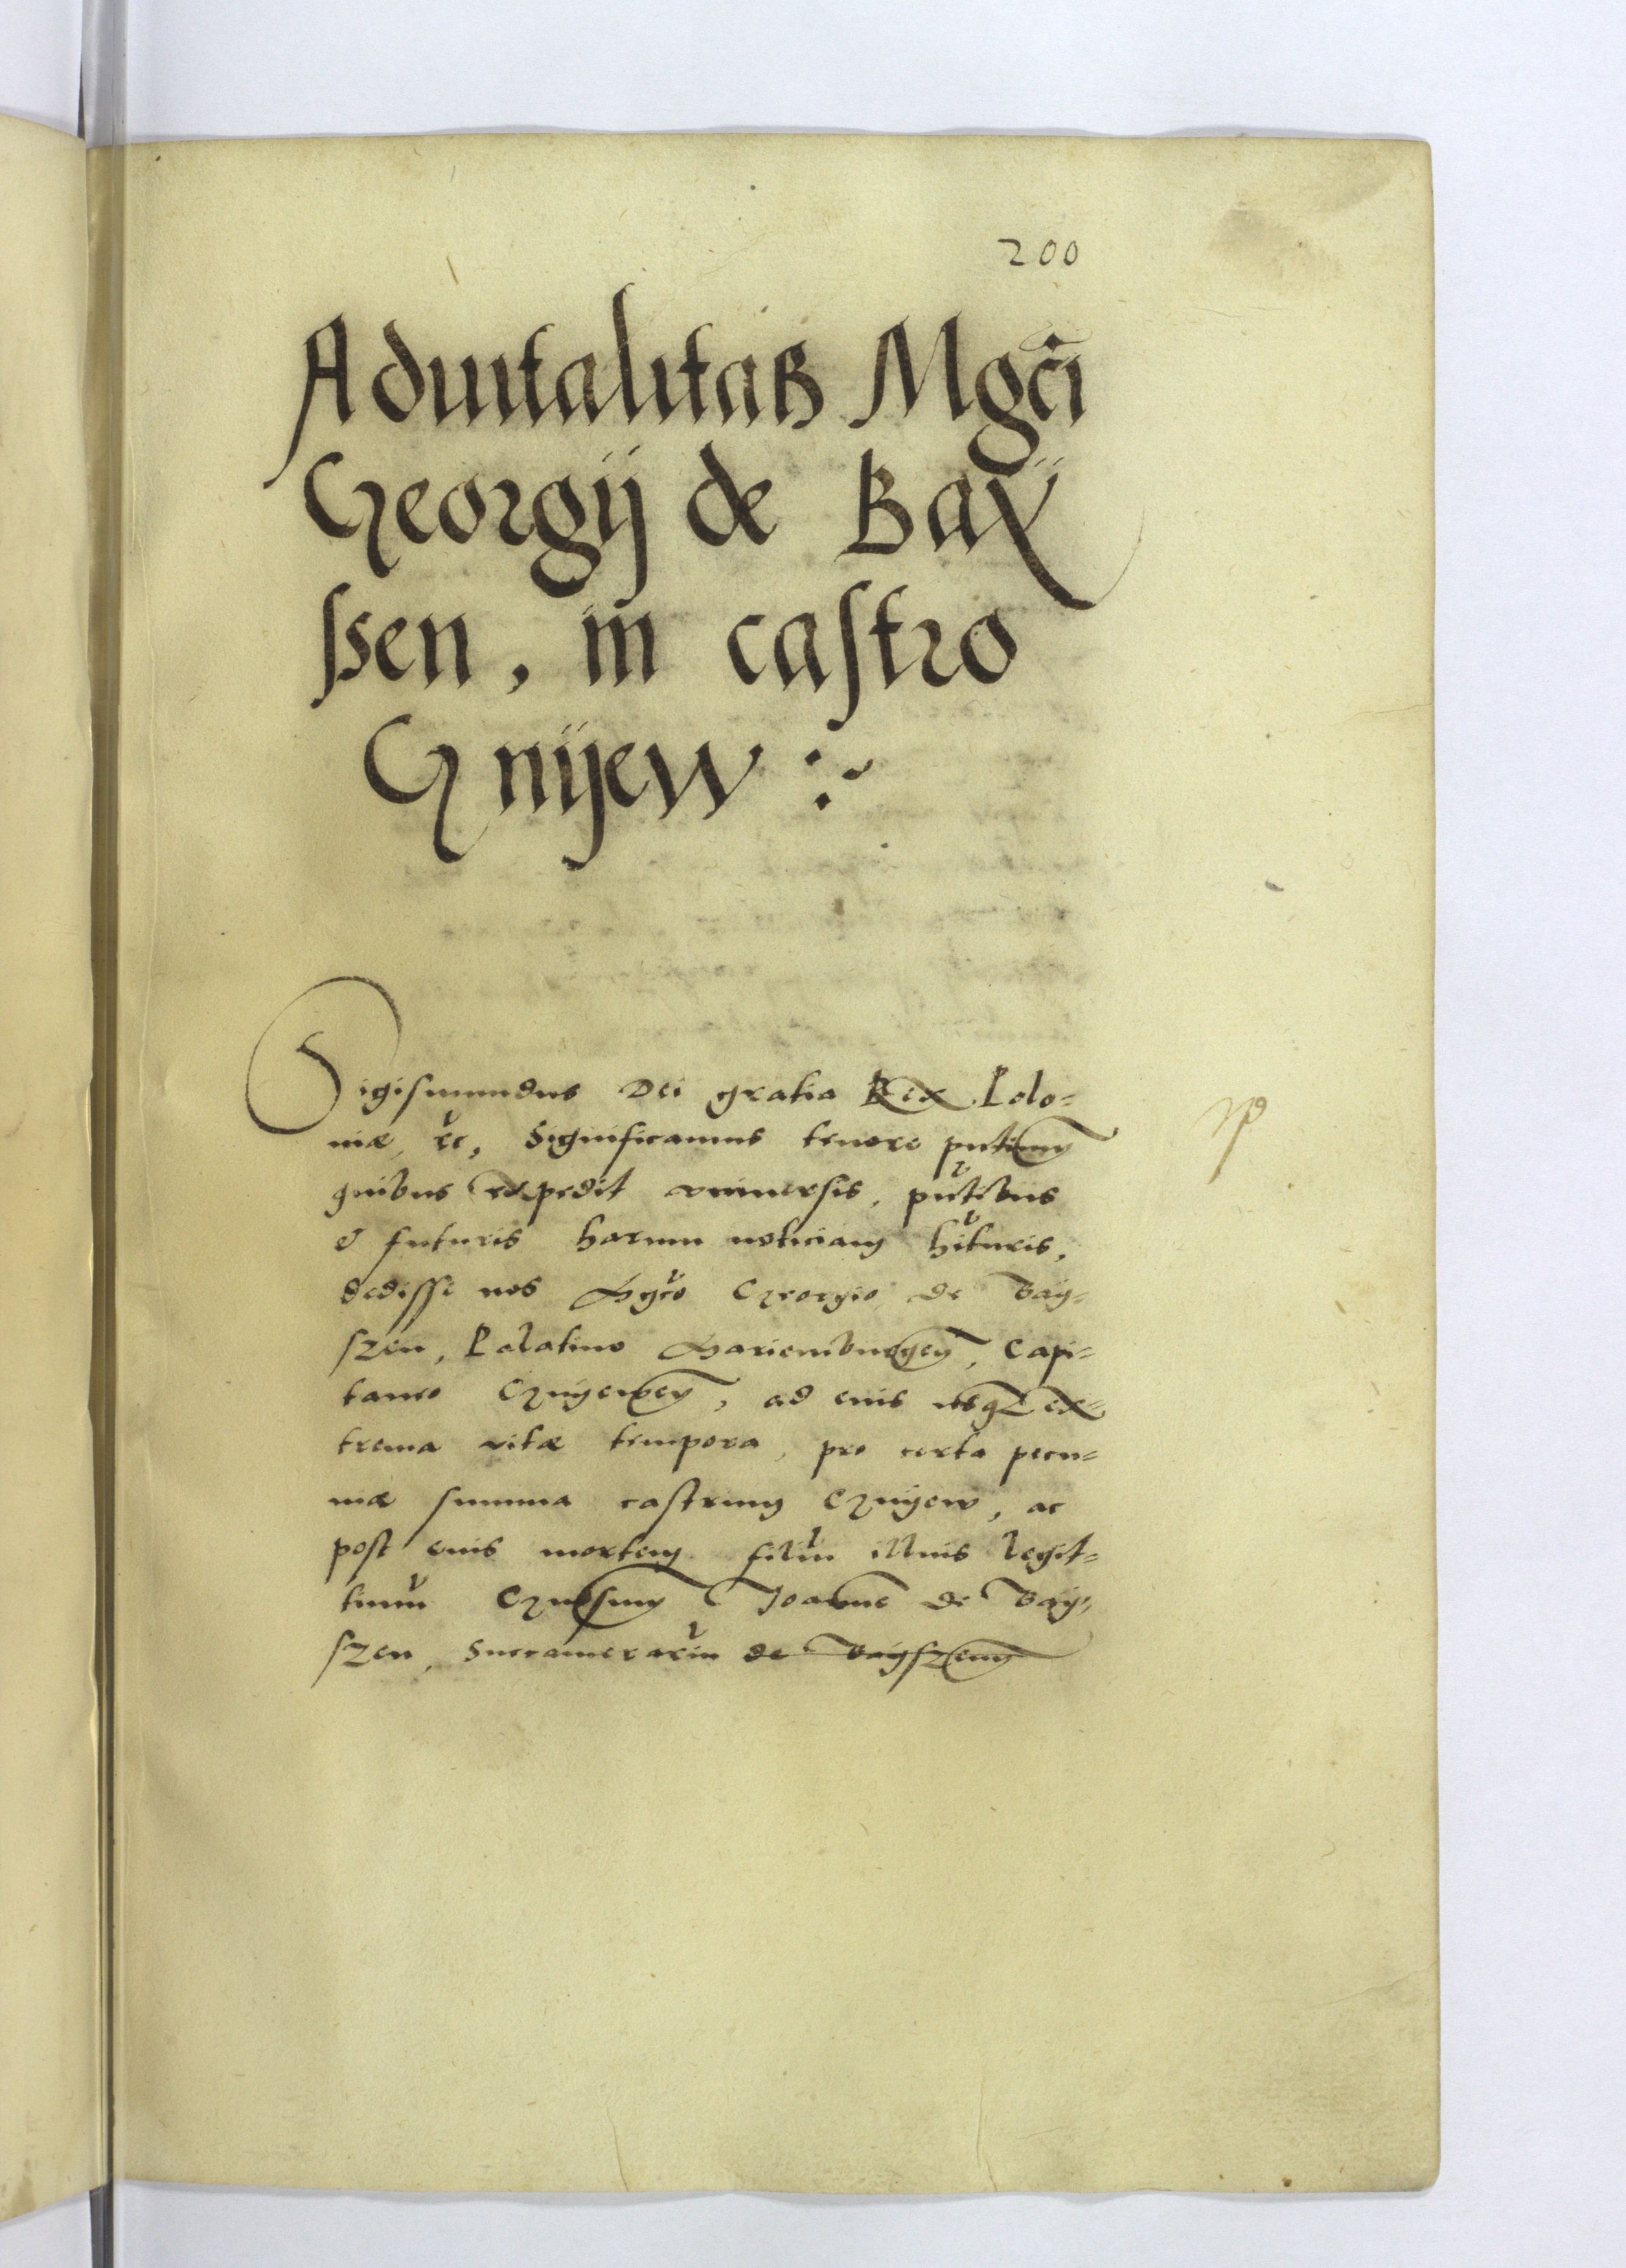 200
Aduitalitas Mgci
Georgij de Baÿ
ssen, in castro
Gnijew :~
Sigismundus Dei gratia Rex Polo=
niæ, &c, Significamus tenore pntium
quibus expedit vniuersis, pntibus
& futuris harum noticiam hituris,
dedisse nos Mgco Georgio de Baÿ=
szen, Palatino Marienburgen, Capi=
taneo Gnijewen, ad eius usq3 ex=
trema vitæ tempora, pro certa pecu=
niæ summa castrum Gnijew, ac
post eius mortem filiu illius legit=
timu Gnosum Joanne de Baÿ=
szen, Succamerariu de Baÿszenn